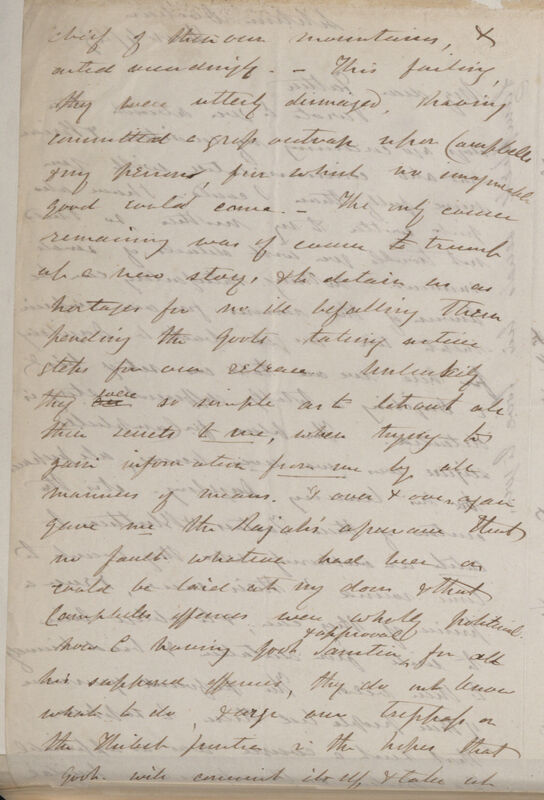 chief of their own mountains, &
acted accordingly. — This failing,
they were utterly dismayed, having
committed a gross outrage upon Campbells
& my persons, from which no imaginable
good could come. — The only course
remaining was of course to trump
up a new story, & to detain us as
hostages for no ill befalling them
pending the Govts taking active
steps for our release. Unluckily
they were so simple as to let out all
their secrets to me, when trying to
gain information from me by all
manners of means. & over & over again
gave me the Rajah's assurance that
no fault whatever had been or
could be laid at my door & that
Campbells offences were wholly political.
now C having Govt Sanction & approval for all
his supposed offences, they do not know
what to do, & urge our trespass on
the Thibet frontier in the hopes that
Govt. will commit itself, & take up